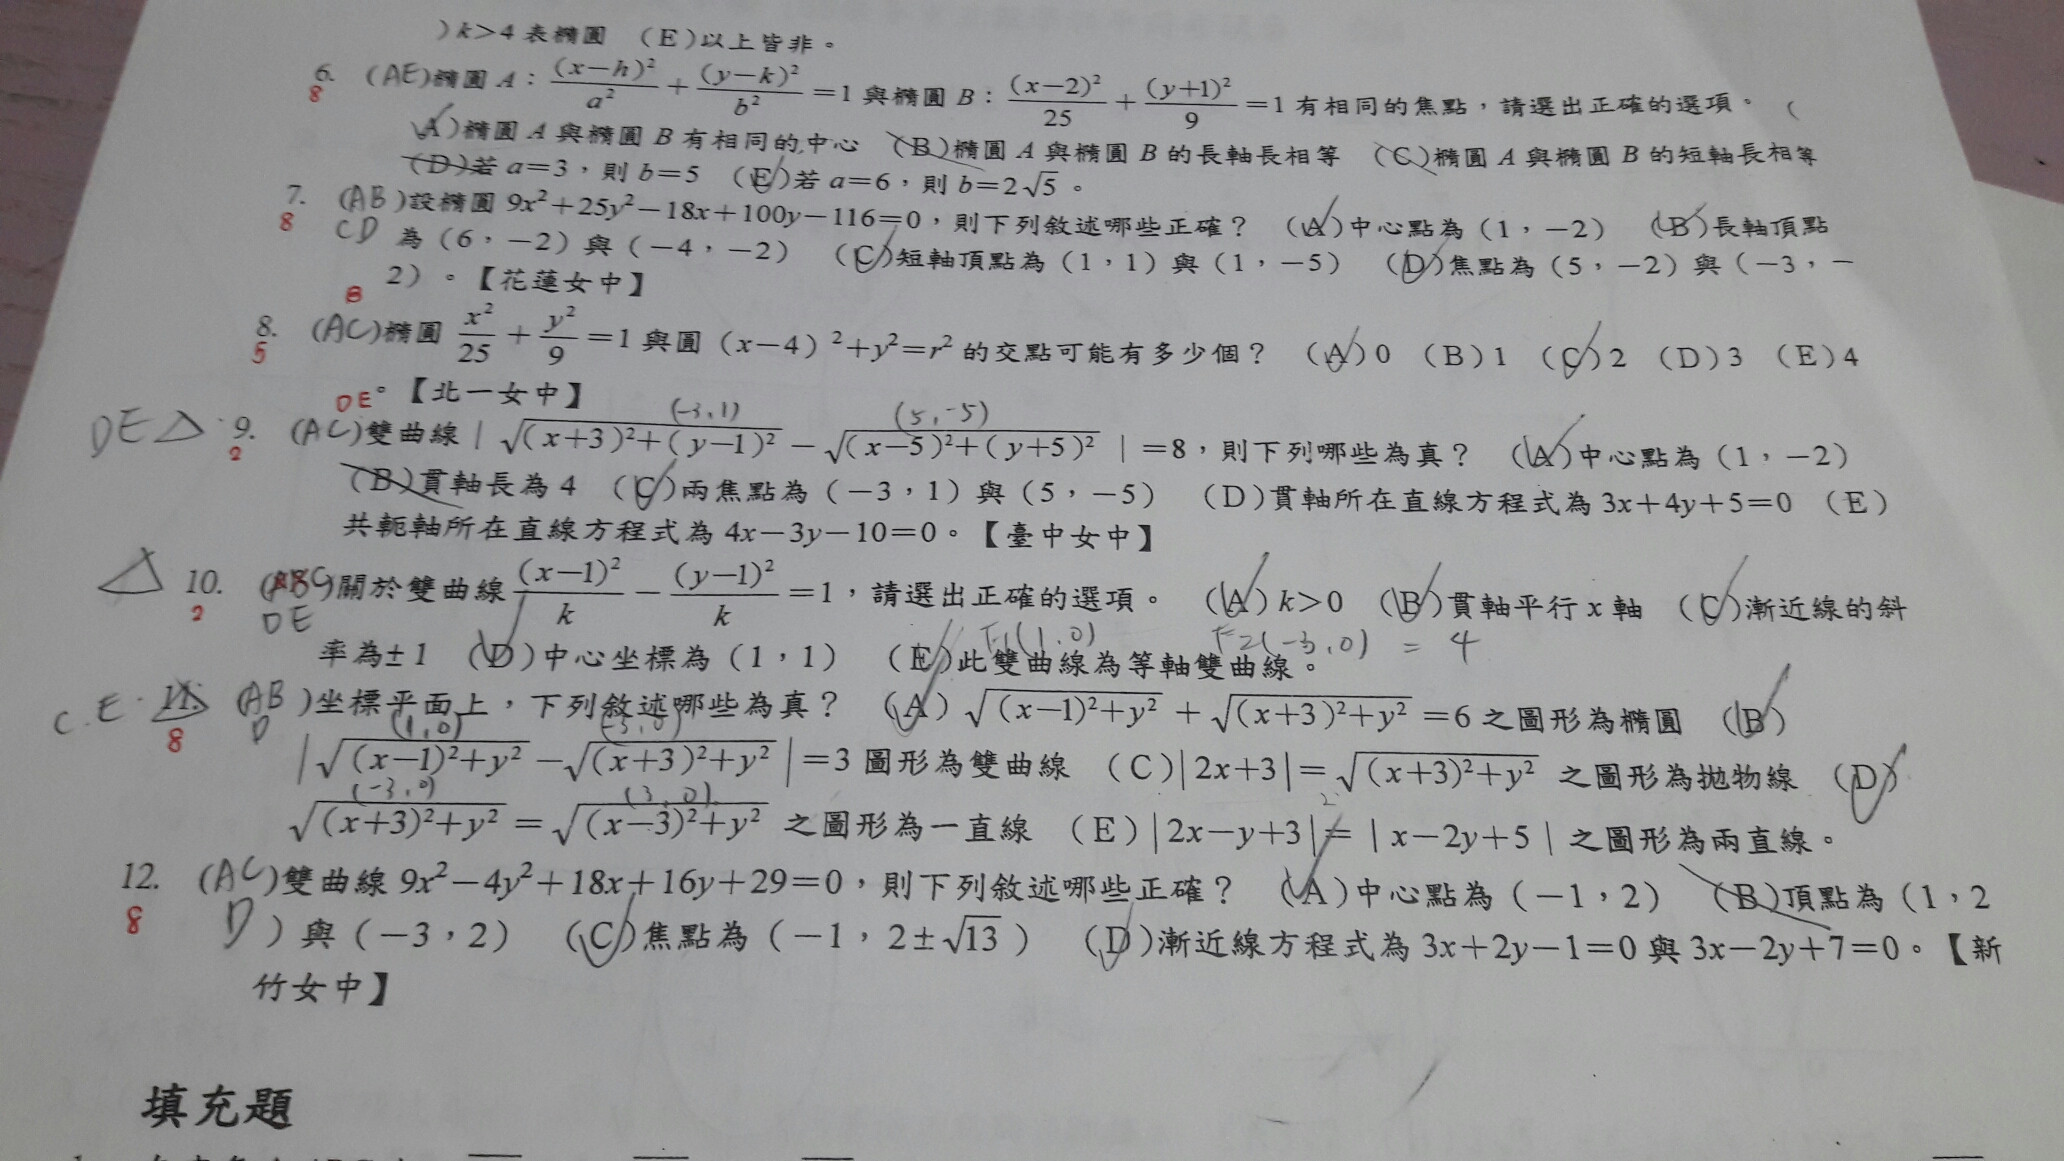 )k>4 表橢圓 (E)以上皆非。
6. (AE)橢圓 A：(x−h)²/a² + (y−k)²/b² =1 與橢圓 B：(x−2)²/25 + (y+1)²/9 =1 有相同的焦點，請選出正確的選項。 (
8
A)橢圓 A 與橢圓 B 有相同的中心 (B)橢圓 A 與橢圓 B 的長軸長相等 (C)橢圓 A 與橢圓 B 的短軸長相等
(D)若 a=3，則 b=5 (E)若 a=6，則 b=2√5。
7. (AB)設橢圓 9x²+25y²−18x+100y−116=0，則下列敘述哪些正確？ (A)中心點為（1，−2） (B)長軸頂點
8 CD 為（6，−2）與（−4，−2） (C)短軸頂點為（1，1）與（1，−5） (D)焦點為（5，−2）與（−3，−
2）。【花蓮女中】
B
8. (AC)橢圓 x²/25 + y²/9 =1 與圓（x−4）²+y²=r² 的交點可能有多少個？ (A)0 (B)1 (C)2 (D)3 (E)4
5
DE 。【北一女中】 (-3,1) (5,-5)
DE △ 9. (AC)雙曲線 | √(x+3)²+(y−1)² − √(x−5)²+(y+5)² | =8，則下列哪些為真？ (A)中心點為（1，−2）
2
(B)貫軸長為 4 (C)兩焦點為（−3，1）與（5，−5） (D)貫軸所在直線方程式為 3x+4y+5=0 (E)
共軛軸所在直線方程式為 4x−3y−10=0。【臺中女中】
△ 10. (ABC)關於雙曲線 (x−1)²/k − (y−1)²/k =1，請選出正確的選項。 (A) k>0 (B)貫軸平行 x 軸 (C)漸近線的斜
2 DE F1(1,0) F2(-3,0) = 4
率為±1 (D)中心坐標為（1，1） (E)此雙曲線為等軸雙曲線。
C.E. △ 11. (AB )坐標平面上，下列敘述哪些為真？ (A) √(x−1)²+y² + √(x+3)²+y² =6 之圖形為橢圓 (B)
8 D (1,0) (-3,0)
| √(x−1)²+y² − √(x+3)²+y² | =3 圖形為雙曲線 (C)|2x+3|= √(x+3)²+y² 之圖形為拋物線 (D)
(-3,0) (3,0)
√(x+3)²+y² = √(x−3)²+y² 之圖形為一直線 (E)|2x−y+3|= | x−2y+5 | 之圖形為兩直線。
12. (AC)雙曲線 9x²−4y²+18x+16y+29=0，則下列敘述哪些正確？ (A)中心點為（−1，2） (B)頂點為（1，2
8 D ）與（−3，2） (C)焦點為（−1，2±√13） (D)漸近線方程式為 3x+2y−1=0 與 3x−2y+7=0。【新
竹女中】
填充題